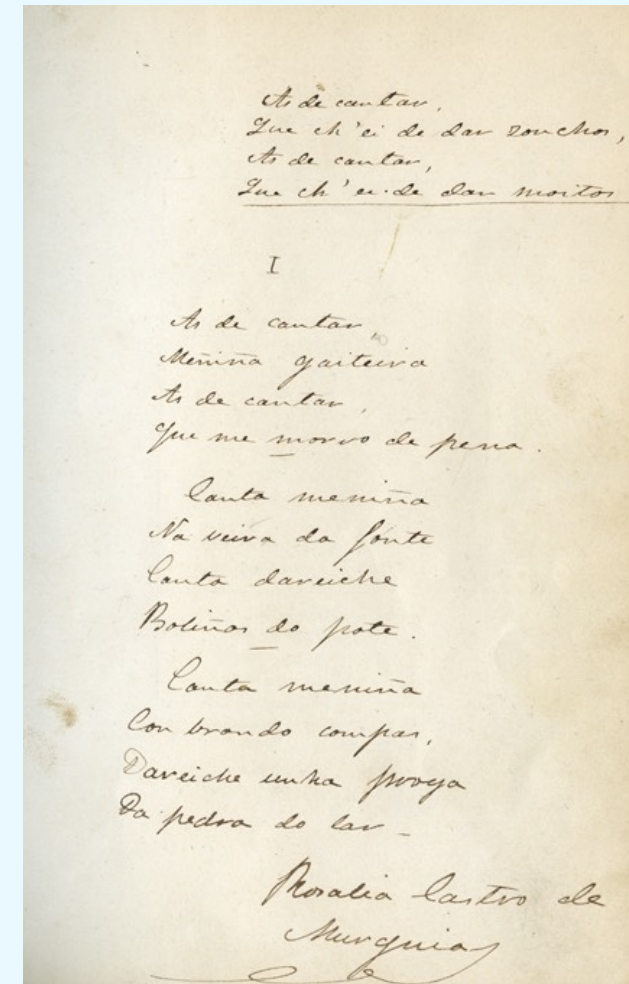 As de cantar,
Que ch'ei de dar zonchos,
As de cantar,
Que ch'ei de dar moitos
I
As de cantar,
Meniña gaiteira
As de cantar,
Que me morro de pena.
Canta meniña
Na veira da fonte
Canta dareiche
Boliños do pote.
Canta meniña
Con brando compas,
Dareiche unha proya
Da pedra do lar_
Rosalia Castro de
Murguia